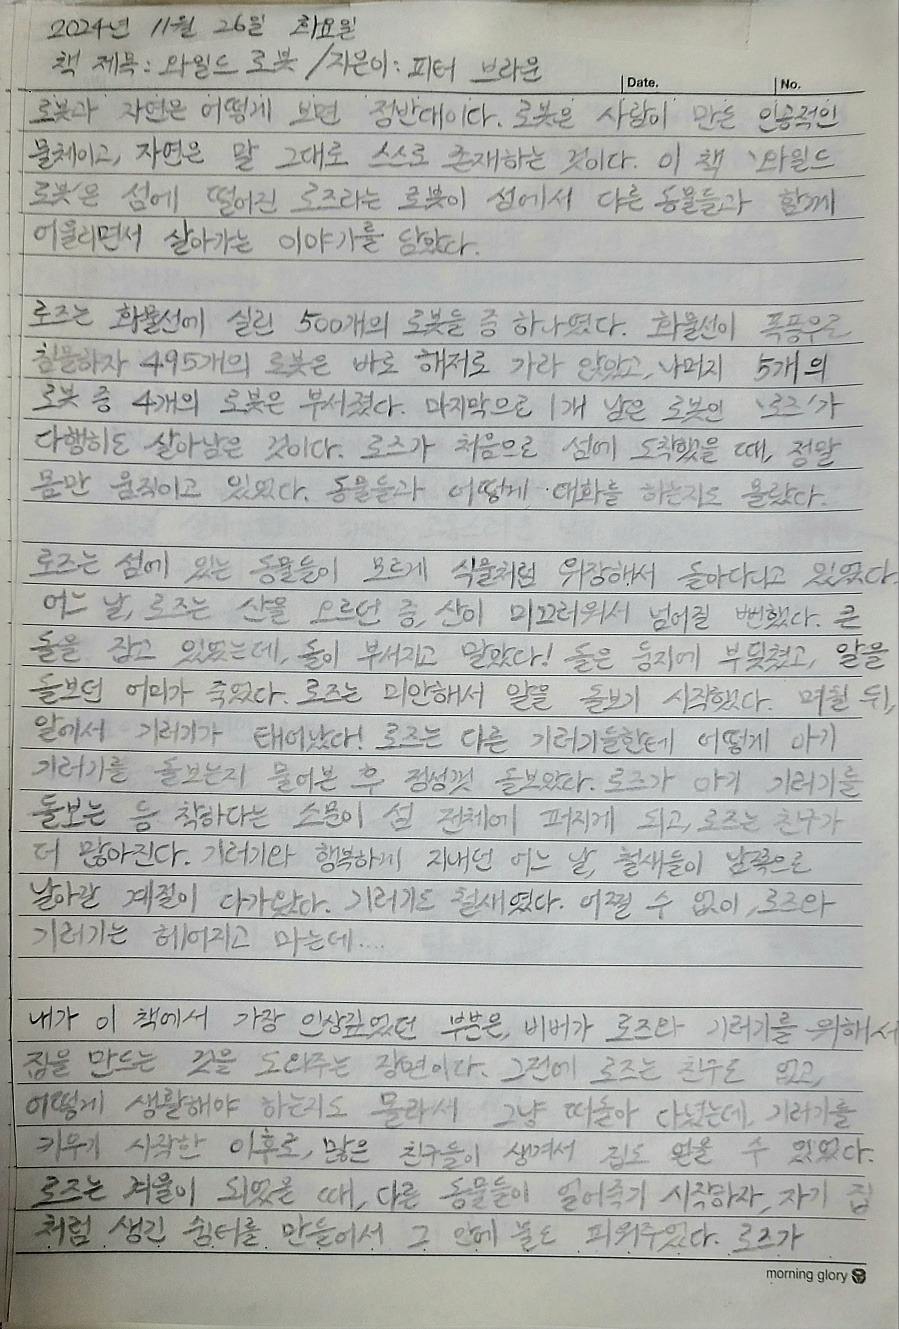 2024년 11월 26일 화요일
책 제목: 와일드 로봇 / 지은이: 피터 브라운
Date. No.
로봇과 자연은 어떻게 보면 정반대이다. 로봇은 사람이 만든 인공적인
물체이고, 자연은 말 그대로 스스로 존재하는 것이다. 이 책 '와일드
로봇'은 섬에 떨어진 로즈라는 로봇이 섬에서 다른 동물들과 함께
어울리면서 살아가는 이야기를 담았다.
로즈는 화물선에 실린 500개의 로봇들 중 하나였다. 화물선이 폭풍우로
침몰하자 495개의 로봇은 바로 해저로 가라 앉았고, 나머지 5개의
로봇 중 4개의 로봇은 부서졌다. 마지막으로 1개 남은 로봇인 '로즈'가
다행히도 살아남은 것이다. 로즈가 처음으로 섬에 도착했을 때, 정말
몸만 움직이고 있었다. 동물들과 어떻게 대화를 하는지도 몰랐다.
로즈는 섬에 있는 동물들이 모르게 식물처럼 위장해서 돌아다니고 있었다.
어느 날, 로즈는 산을 오르던 중, 산이 미끄러워서 넘어질 뻔했다. 큰
돌을 잡고 있었는데, 돌이 부서지고 말았다! 돌은 둥지에 부딪쳤고, 알을
돌보던 어미가 죽었다. 로즈는 미안해서 알을 돌보기 시작했다. 며칠 뒤,
알에서 기러기가 태어났다! 로즈는 다른 기러기들한테 어떻게 아기
기러기를 돌보는지 물어본 후 정성껏 돌보았다. 로즈가 아기 기러기를
돌보는 등 착하다는 소문이 섬 전체에 퍼지게 되고, 로즈는 친구가
더 많아진다. 기러기와 행복하게 지내던 어느 날, 철새들이 남쪽으로
날아갈 계절이 다가왔다. 기러기도 철새였다. 어쩔 수 없이, 로즈와
기러기는 헤어지고 마는데....
내가 이 책에서 가장 인상깊었던 부분은, 비버가 로즈와 기러기를 위해서
집을 만드는 것을 도와주는 장면이다. 그전에 로즈는 친구도 없고,
어떻게 생활해야 하는지도 몰라서 그냥 떠돌아 다녔는데, 기러기를
키우기 시작한 이후로, 많은 친구들이 생겨서 집도 얻을 수 있었다.
로즈는 겨울이 되었을 때, 다른 동물들이 얼어죽기 시작하자, 자기 집
처럼 생긴 쉼터를 만들어서 그 안에 불도 피워주었다. 로즈가
morning glory